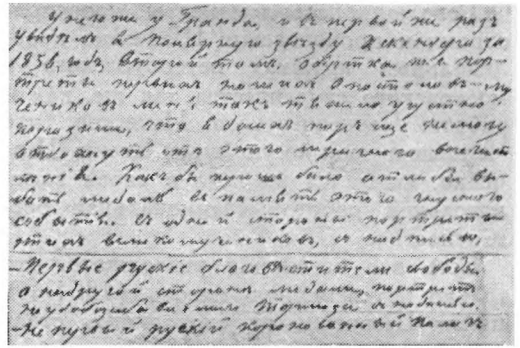 У него же у Гранда, и въ первый же разъ
увидѣлъ я полярную звезду Искандера за
1856, годъ, второй томъ. Обертка, т. е. пор-
треты первыхъ нашихъ апостоловъ-му-
чениковъ меня такъ тяжело грустно
поразили, что я до сихъ поръ еще не могу
отдохнуть отъ этого мрачного впечат-
ленія. Какъ бы хорошо было еслибы вы-
бить медаль въ память этого гнусного
события. Съ одной стороны портреты
этихъ великомучениковъ, съ надписью,
-Первые русскіе благовѣстители свободы,
а на другой стороне медали, портретъ
неудобозабываемого Тормоза съ надписью.
-Не первый рускій коронованый палачъ